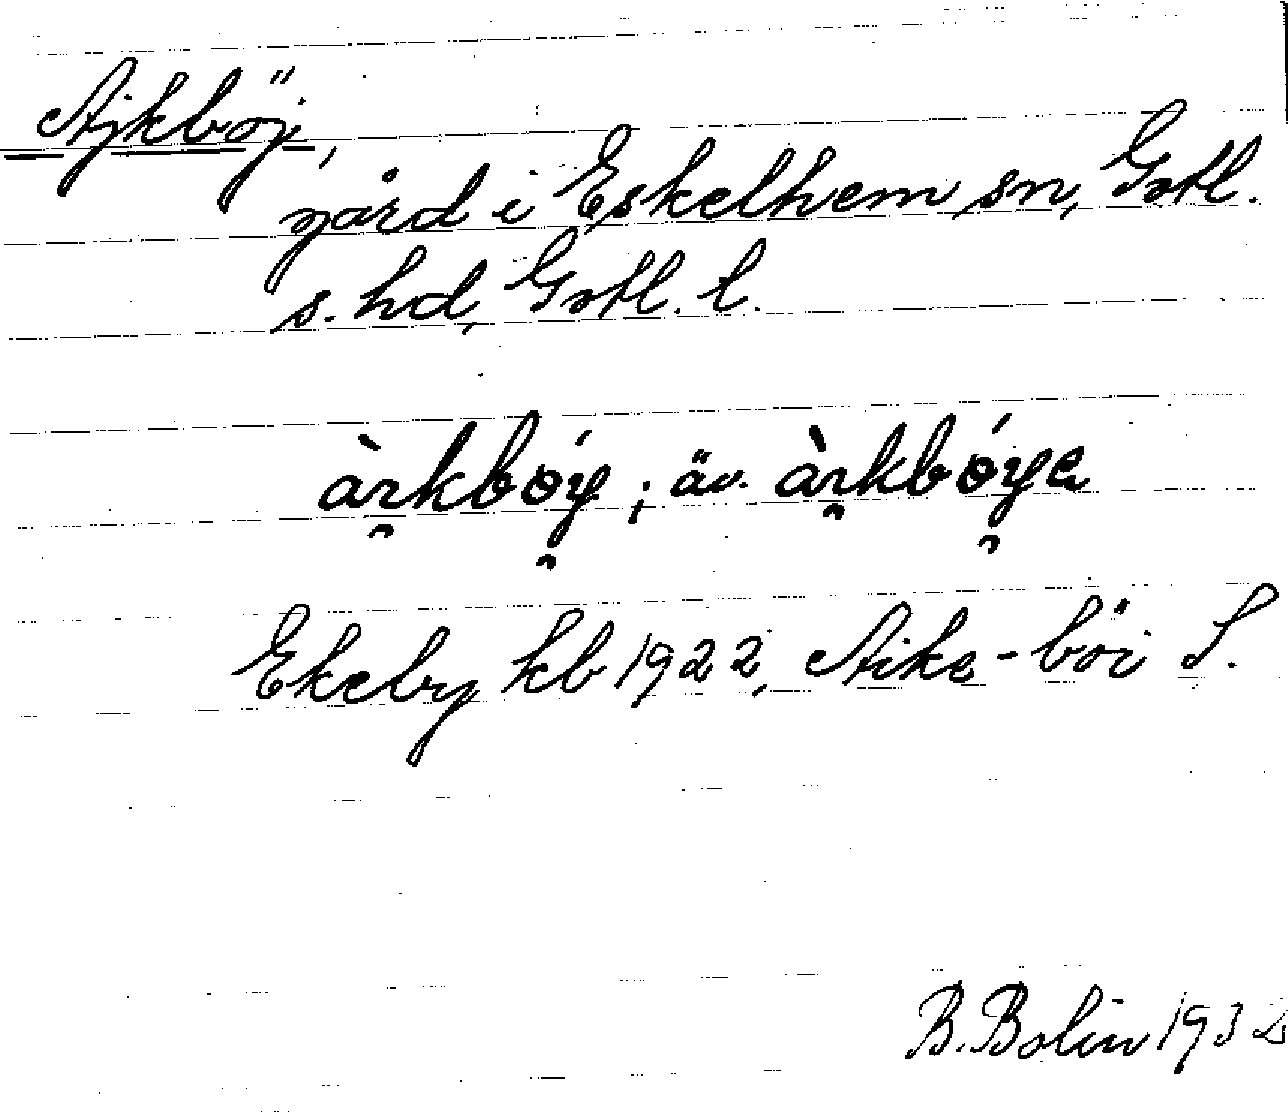 Ajkböj,
gård i Eskelhem sn, Gotl.
s. hd, Gotl. l.
àı̯kbóy̯ ; äv. àı̯kbóy̯e
Ekeby kb 1922, Aike-böi L.
B. Bolin 1932